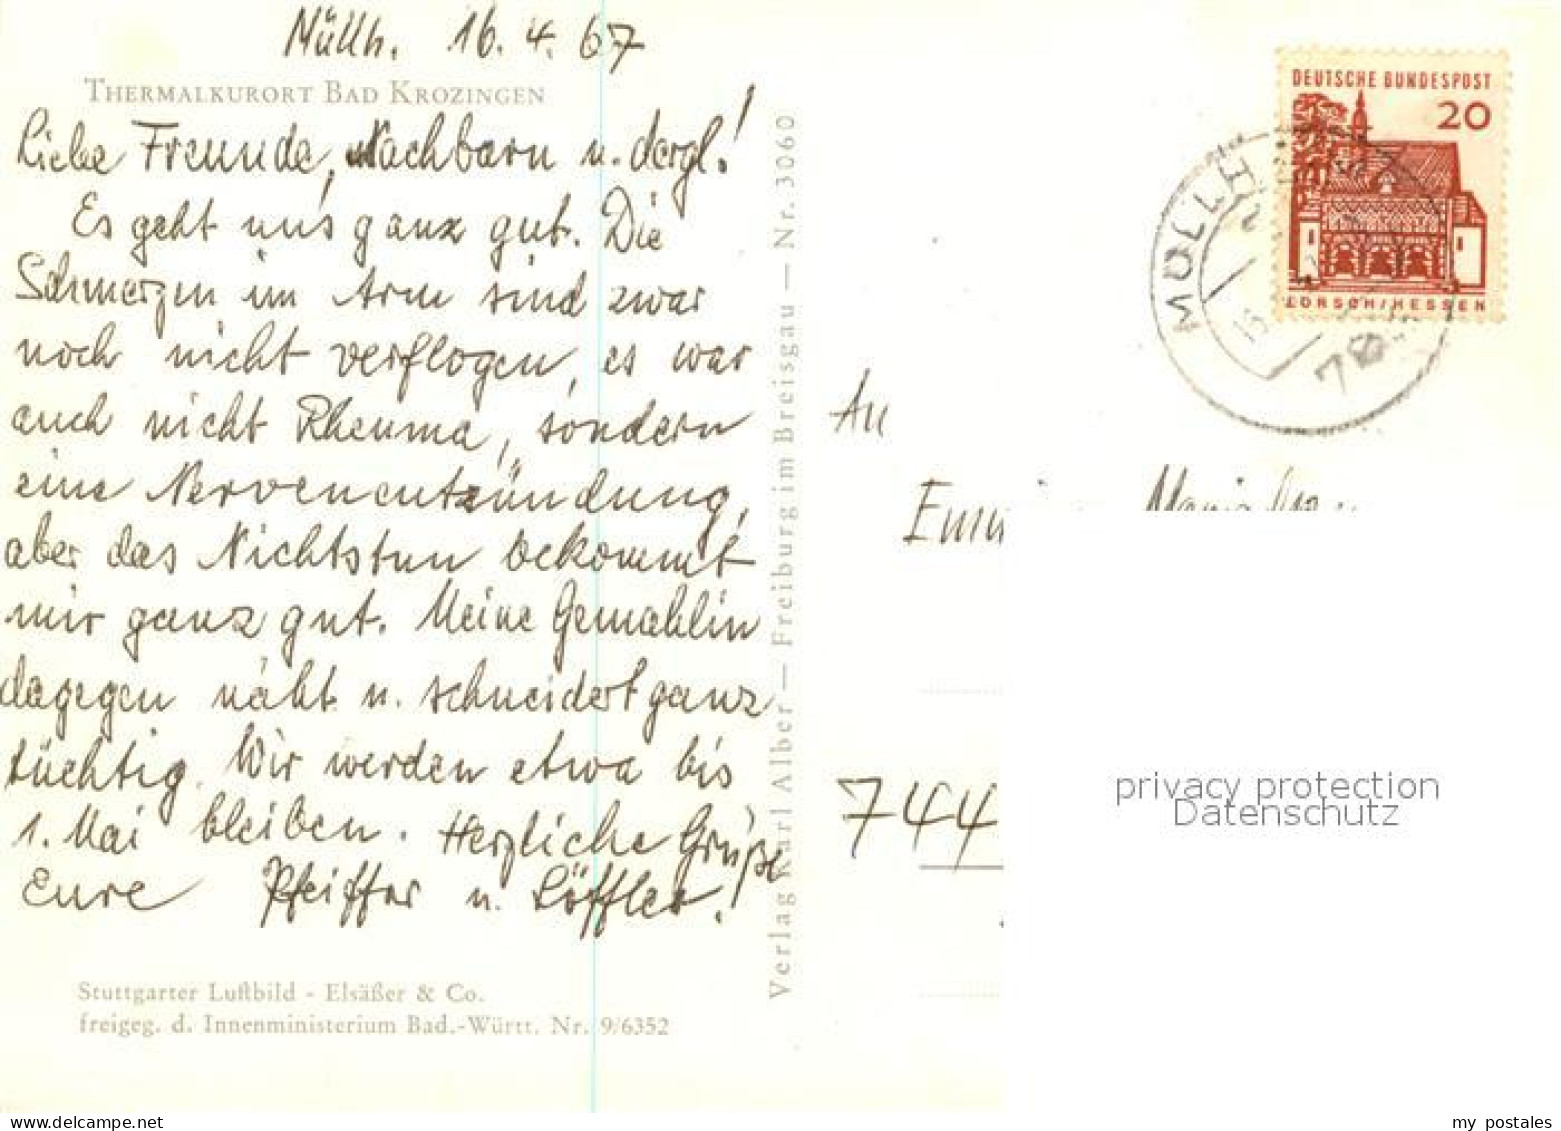 Müllh. 16. 4. 67
THERMALKURORT BAD KROZINGEN
Liebe Freunde, Nachbarn u. dergl.!
Es geht uns ganz gut. Die
Schmerzen im Arm sind zwar
noch nicht verflogen, es war
auch nicht Rheuma, sondern
eine Nervenentzündung,
aber das Nichtstun bekommt
mir ganz gut. Meine Gemahlin
dagegen näht u. schneidert ganz
tüchtig. Wir werden etwa bis
1. Mai bleiben. Herzliche Grüße
Eure Pfeiffer u. Löffler!
Stuttgarter Luftbild - Elsäßer & Co.
freigeg. d. Innenministerium Bad.-Württ. Nr. 9/6352
Verlag Karl Alber — Freiburg im Breisgau — Nr. 3060
DEUTSCHE BUNDESPOST
20
LORSCH/HESSEN
MÜLLH
An
744
privacy protection
Datenschutz
delcampe.net
my_postales